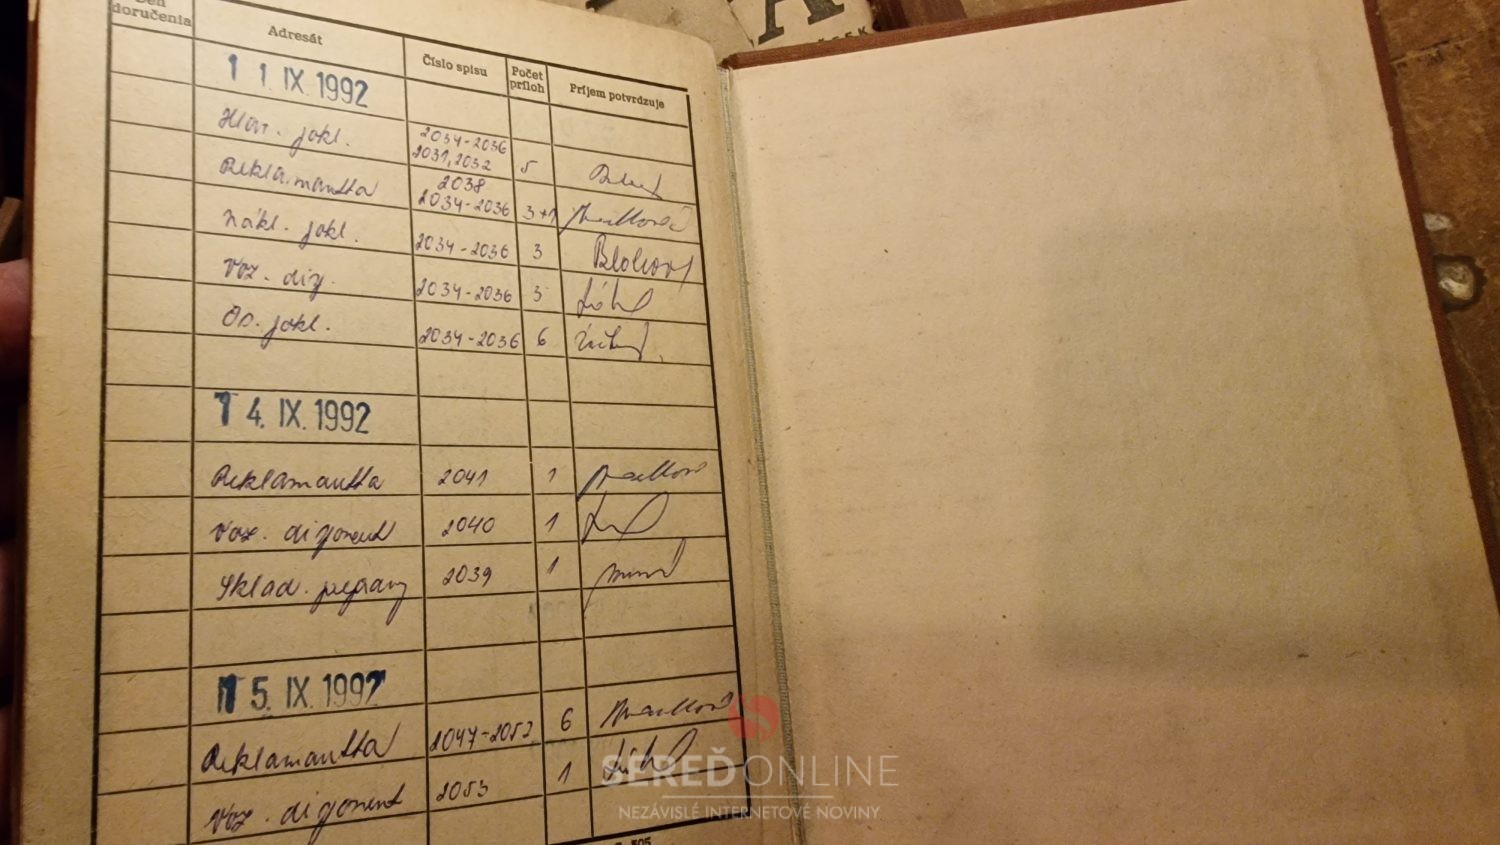 Deň doručenia Adresát Číslo spisu Počet príloh Príjem potvrdzuje
1 1. IX. 1992
Hlav. pokl. 2034-2036
2031, 2032 5
Reklamantka 2038
2034-2036 3+1
Nákl. pokl. 2034-2036 3
Voz. dis. 2034-2036 3
Os. pokl. 2034-2036 6
1 4. IX. 1992
Reklamantka 2041 1
Voz. disponent 2040 1
Sklad. prepravy 2039 1
1 5. IX. 1992
Reklamantka 2047-2052 6
Voz. disponent 2053 1
SEREĎONLINE
NEZÁVISLÉ INTERNETOVÉ NOVINY